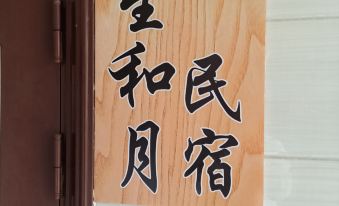 和月
民宿